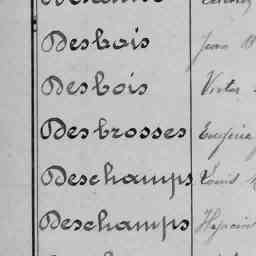 Desbois Jean B
Desbois Victor
Desbrosses Eugénie
Deschamps Louis
Deschamps